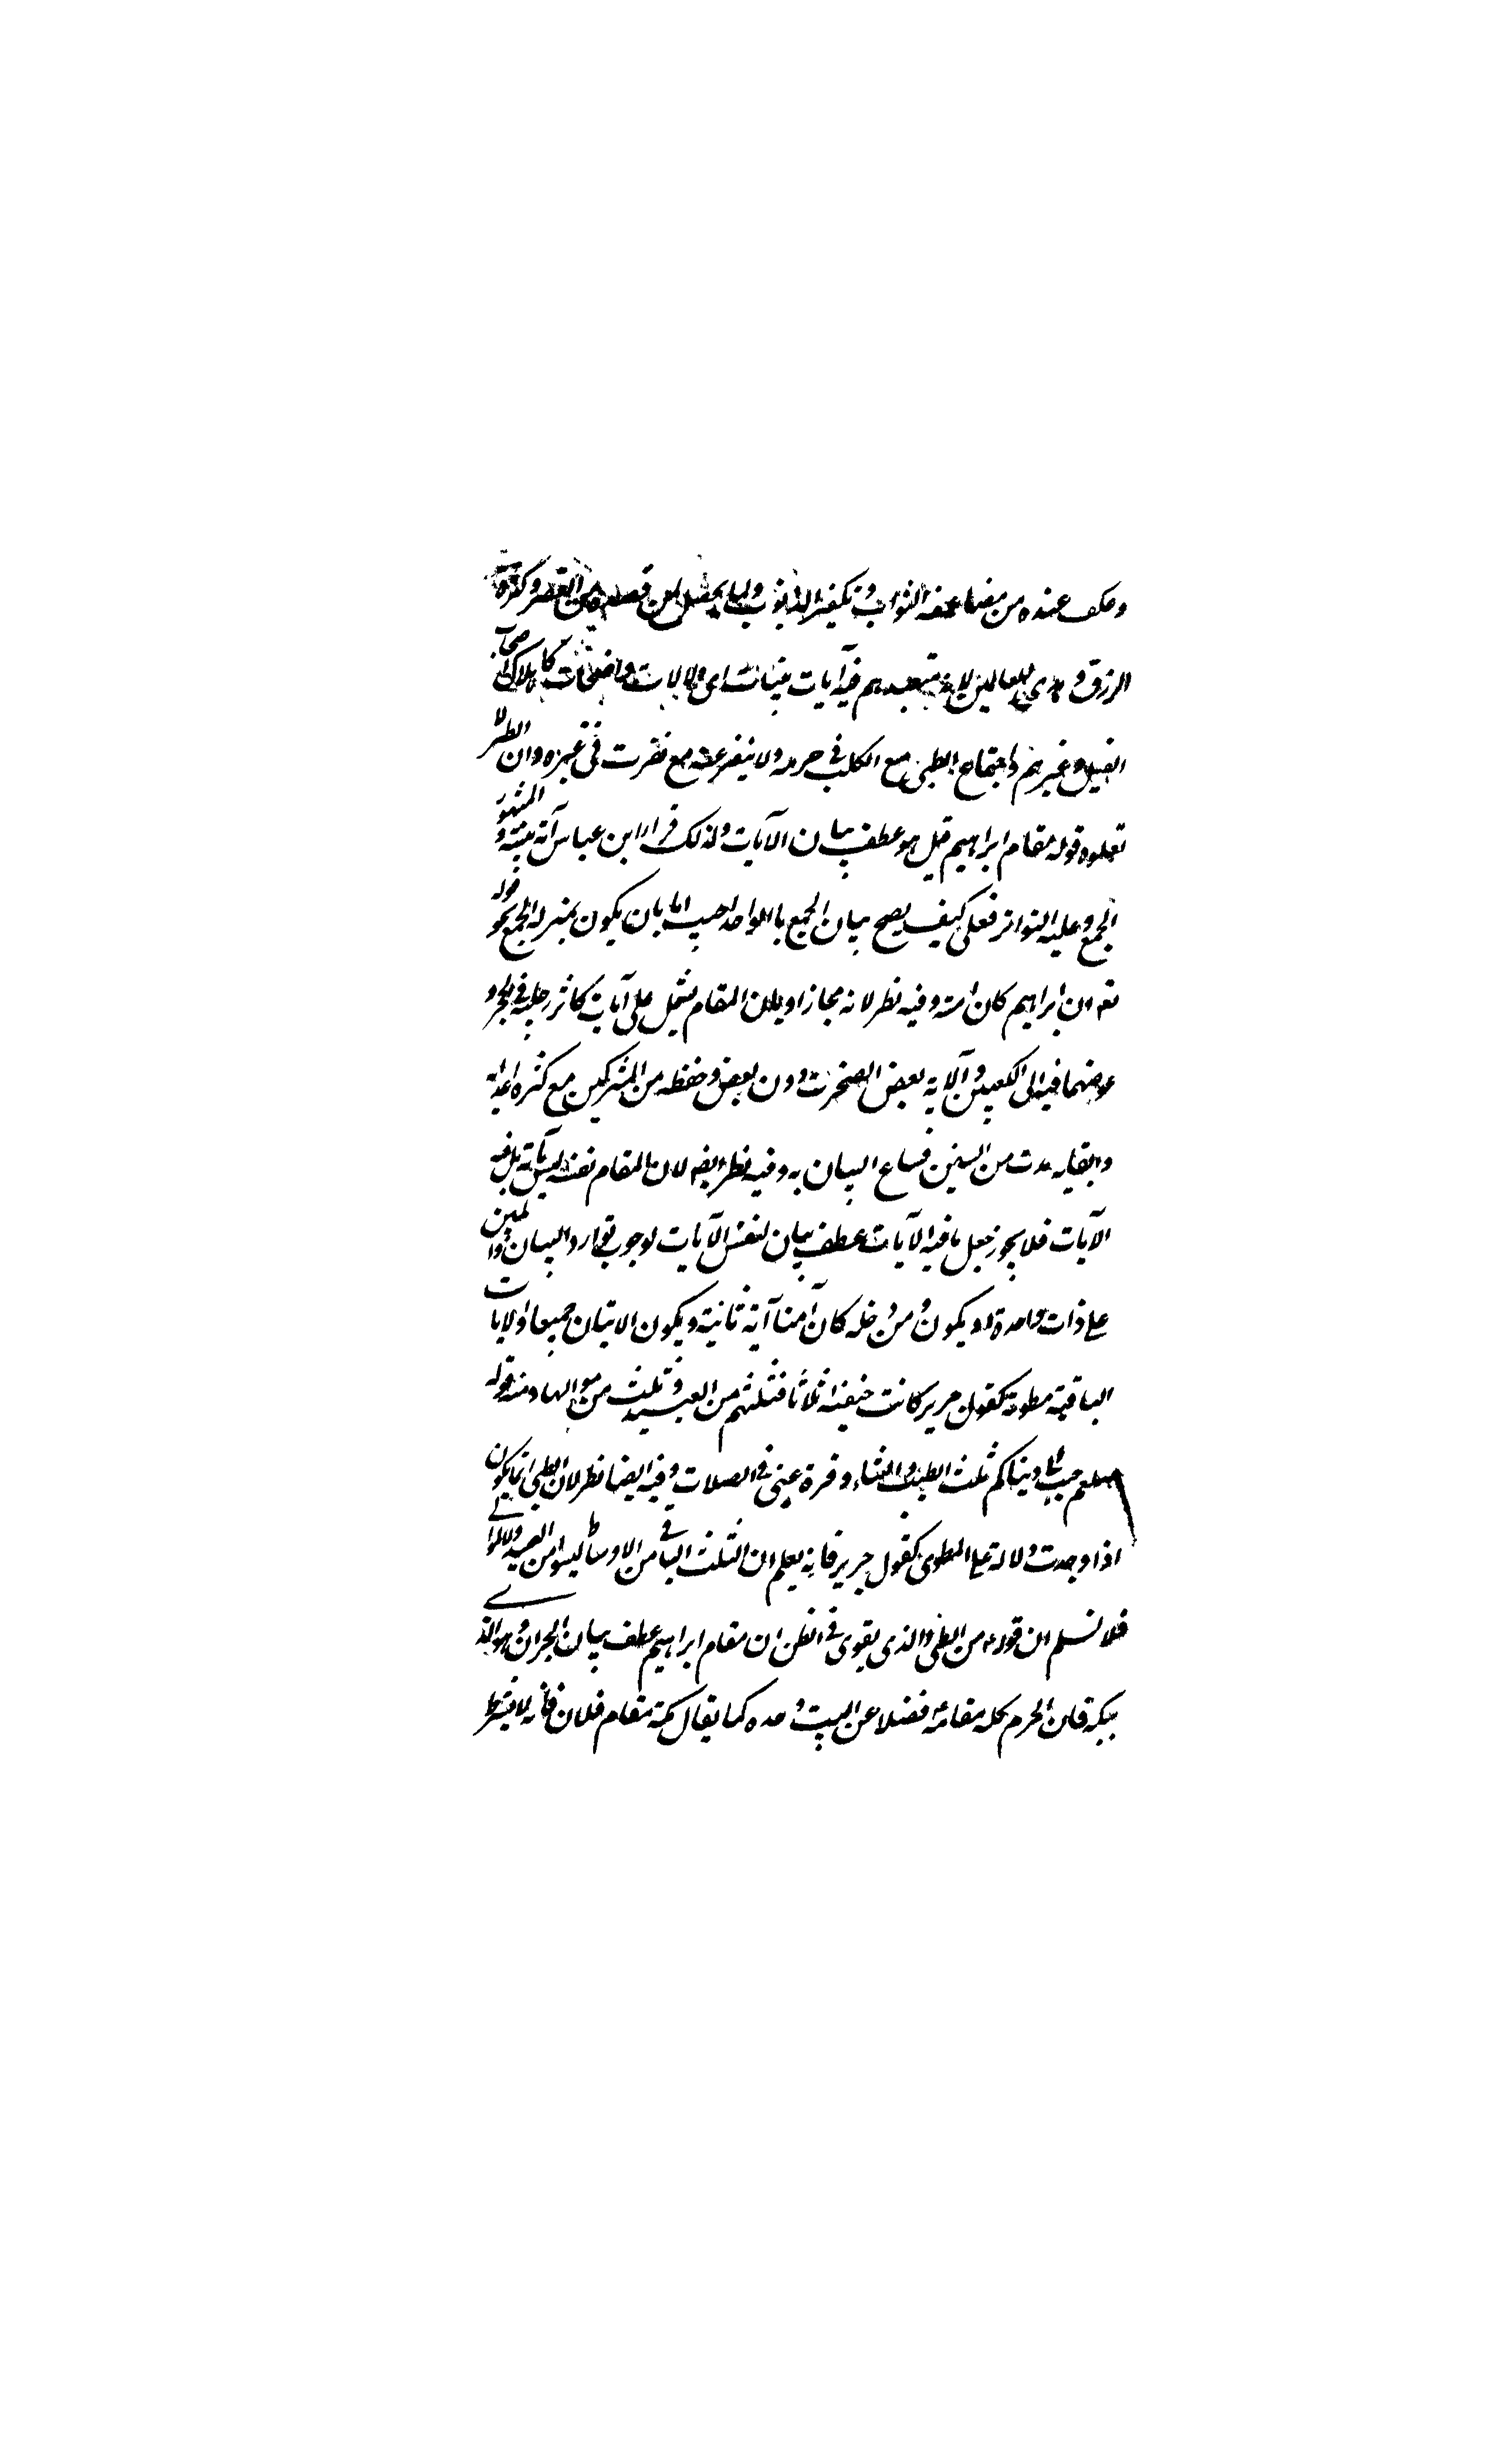 وعكف عنده من مضاعفة الثواب وتكفير الذنوب ولما يحصل لمن قصده من القصر وكثرة
الرزق وهدى للعالمين لانه متعبدهم فيه آيات بينات اى دلالات واضحات كاهلاك اصحاب
الفيل وغيرهم واجتماع الظبى مع الكلب فى حرمه ولا ينفر عنه مع نفرت فى غيره وان الطير لا
تعلوه قوله مقام ابراهيم قيل هو عطف بيان الآيات ولذلك قرا ابن عباس آية بينة والمشهور
الجمع وعليه التواتر فعلى كيف يصح بيان الجمع بالواحد اجيب اما بان يكون بمنزلة الجمع نحو قوله
تع ان ابراهيم كان امة وفيه نظر لانه مجاز او بان المقام يشتمل على آيات كاثر رجليه فى الحجر و
غوضهما فيه الى الكعبين والآية بعض الصخرت دون بعض وحفظه من المشركين مع كثرة اعدائه
وابقايه مدت من السنين فساع البيان به وفيه نظر ايضا لان المقام نفسه ليس بآية بل فيه
الآيات فلا يجوز جعل ما فيه الآيات عطف بيان لنفس الآيات لوجوب توارد البيان والمبين
على ذات واحدة او يكون ومن دخله كان آمنا آية ثانية ويكون الاتيان جميعا والايات
الباقية مطوية كقول جرير كانت حنيفة اثلاثا فثلثهم من العبيد وثلث من مواليها ومنه قوله
صلعم حبب الى من دنياكم ثلث الطيب والنساء وقرة عينى فى الصلات وفيه ايضا نظر لان الطى انما يكون
اذا وجدت دلالة على المطوى كقول جرير فانه يعلم ان الثلث الباقى من الاوساط ليسوا من العبيد ولا الموالى
فلا نسلم ان قوله من الطى والذى يقوى فى الظن ان مقام ابراهيم عطف بيان الجران وهو الذى
ببكة فان الحرم كله مقامه فضلا عن البيت وحده كما يقال مكة مقام فلان فانه لا يشترط